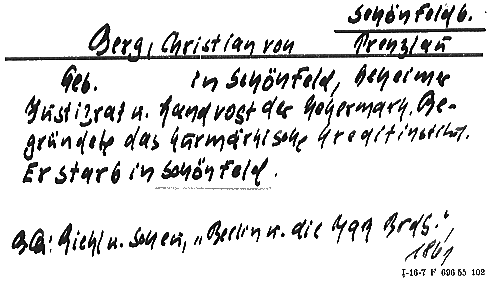 Schönfeld b.
Berg, Christian von Prenzlau
Geb. in Schönfeld, Geheimer
Justizrat u. Landvogt der Uckermark. Be-
gründete das Kurmärkische Kreditinstitut.
Er starb in Schönfeld.
BQu: Riehl u. Scheu, „Berlin u. die Mark Brdbg.",
1861
I-16-7 F 696 55 102